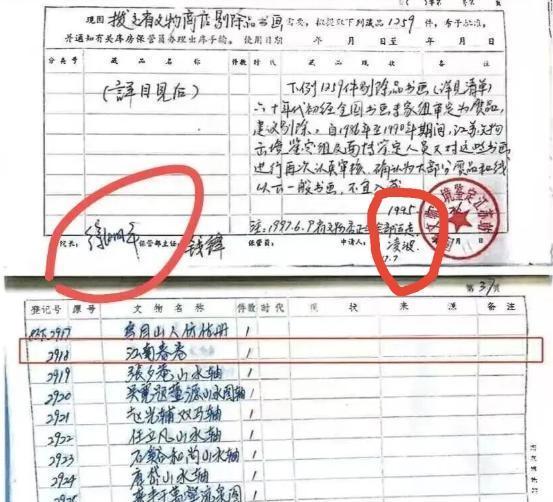 现因 拨交省文物商店剔除品书画 需要，拟提取下列藏品1259件，务予批准，
并通知有关库房保管员办理出库手续。使用日期 年 月 日至 年 月 日
分类号 藏品名称 件数 时代 现状 备注
（詳目見后）
下列1259件剔除品书画（详目见清单）
六十年代初经全国书画专家组审定为贋品，
建议剔除。自1986年至1990年期间，江苏文物
鉴定人员又对这些书画
进行再次认真审核，确认为大部分贋品和线
以下一般书画，不宜入藏
1995
注：1997.6.9
院长： 徐湖平 保管部主任： 钱锋 保管员： 申请人： 凌波
7.7
月 日
鉴定江苏
第37頁
登记号 原号 文物名称 件数 时代 现状 来源 备注
2917 山人 册 1
2918 江南春卷 1
2919 張夕菴山水轴 1
2920 山水图轴 1
2921 双马轴 1
2922 任立凡山水轴 1
2923 和尚山水轴 1
2924 山水轴 1
2925